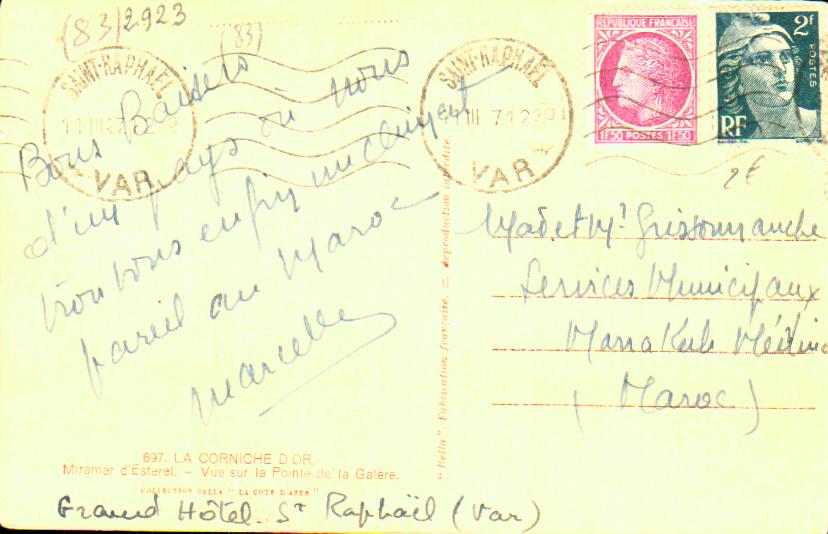 (83) 2923
(83)
SAINT-RAPHAEL
VAR
SAINT-RAPHAEL
VAR
REPUBLIQUE FRANÇAISE
1F50 POSTES 1F50
2F
POSTES
RF
2€
Bons Baisers
d'un pays où nous
trouvons enfin un climat
pareil au Maroc
Marcelle
Mad et Mr Grissomanche
Services Municipaux
Marrakech Médina
(Maroc)
"Bella", Fabrication française. — Reproduction interdite
697. LA CORNICHE D'OR.
Miramar d'Esterel. — Vue sur la Pointe de la Galère.
COLLECTION BELLA "LA COTE D'AZUR"
Grand Hôtel St Raphaël (Var)